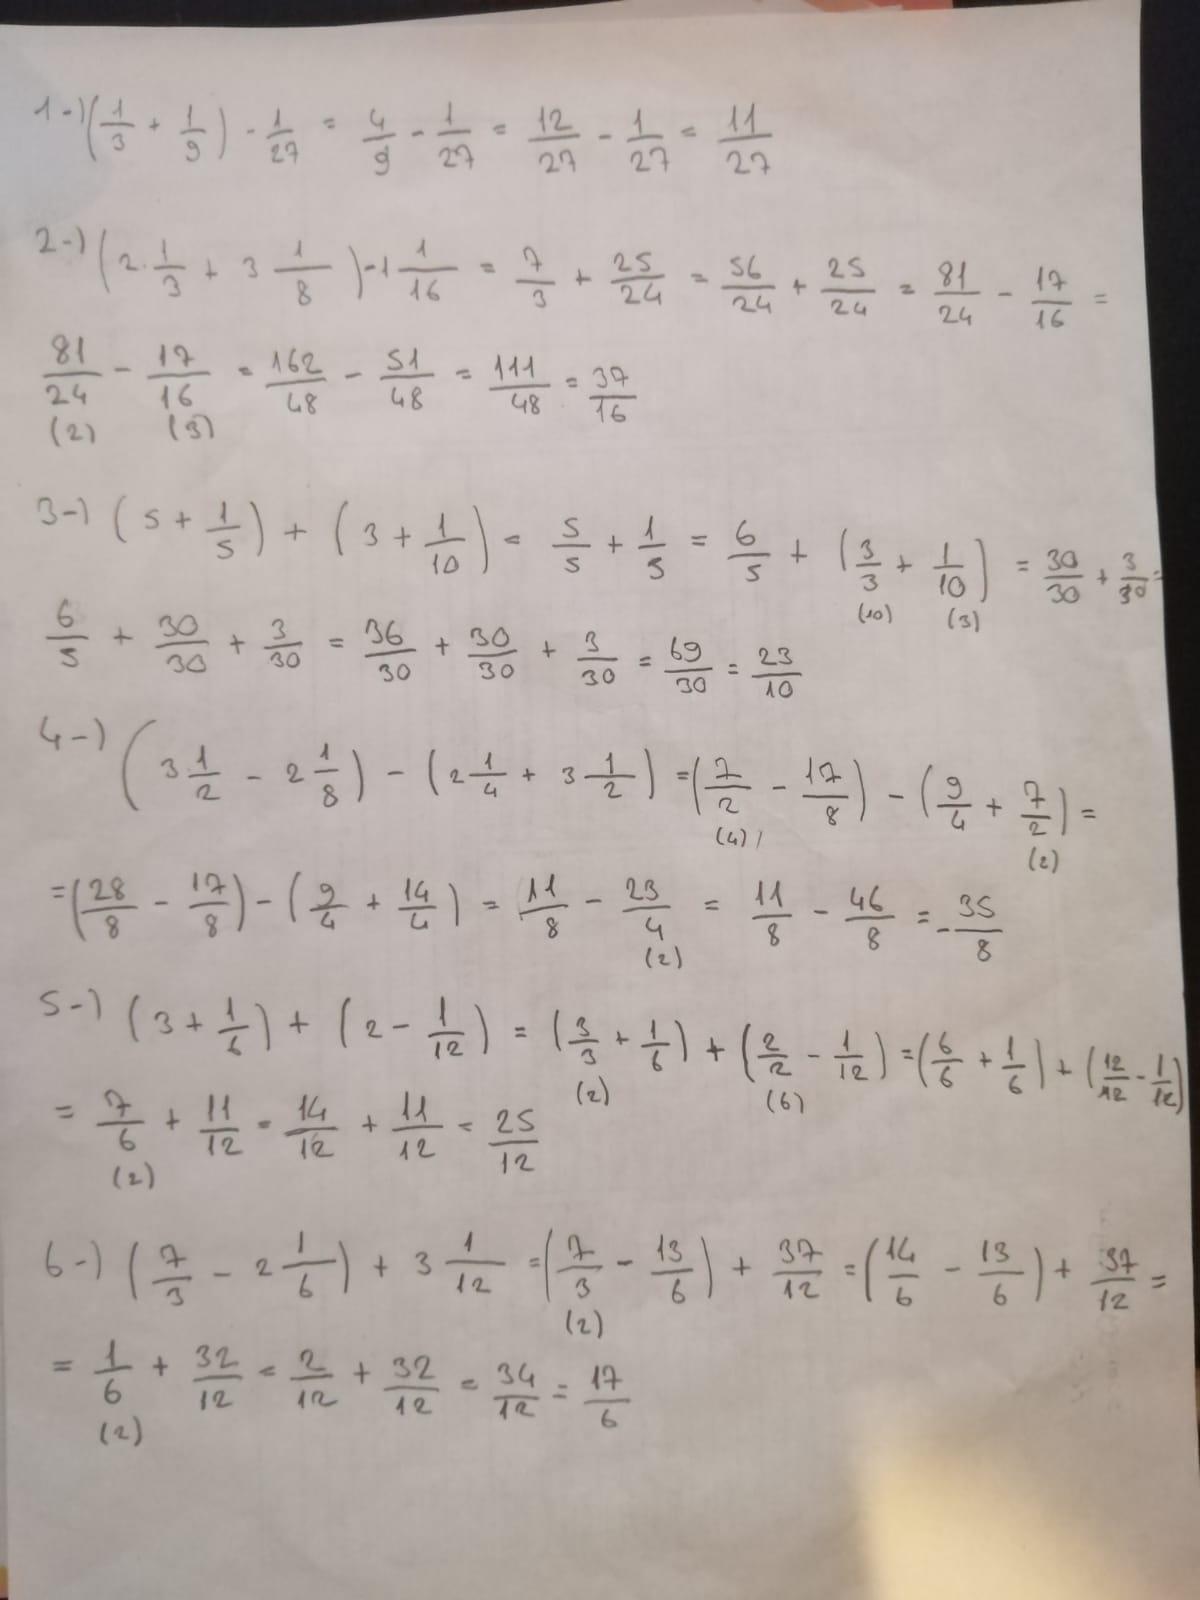 1-) (1/3 + 1/9) - 1/27 = 4/9 - 1/27 = 12/27 - 1/27 = 11/27
2-) (2·1/3 + 3 1/8) - 1 1/16 = 7/3 + 25/24 = 56/24 + 25/24 = 81/24 - 17/16 =
81/24 (2) - 17/16 (3) = 162/48 - 51/48 = 111/48 = 37/16
3-) (5 + 1/5) + (3 + 1/10) = 5/5 + 1/5 = 6/5 + (3/3 (10) + 1/10 (3)) = 30/30 + 3/30 =
6/5 + 30/30 + 3/30 = 36/30 + 30/30 + 3/30 = 69/30 = 23/10
4-) (3 1/2 - 2 1/8) - (2 1/4 + 3 1/2) = (7/2 (4) - 17/8) - (9/4 + 7/2 (2)) =
= (28/8 - 17/8) - (9/4 + 14/4) = 11/8 - 23/4 (2) = 11/8 - 46/8 = -35/8
5-) (3 + 1/6) + (2 - 1/12) = (3/3 (2) + 1/6) + (2/2 (6) - 1/12) = (6/6 + 1/6) + (12/12 - 1/12)
= 7/6 (2) + 11/12 = 14/12 + 11/12 = 25/12
6-) (7/3 - 2 1/6) + 3 1/12 = (7/3 (2) - 13/6) + 37/12 = (14/6 - 13/6) + 37/12 =
= 1/6 (2) + 32/12 = 2/12 + 32/12 = 34/12 = 17/6